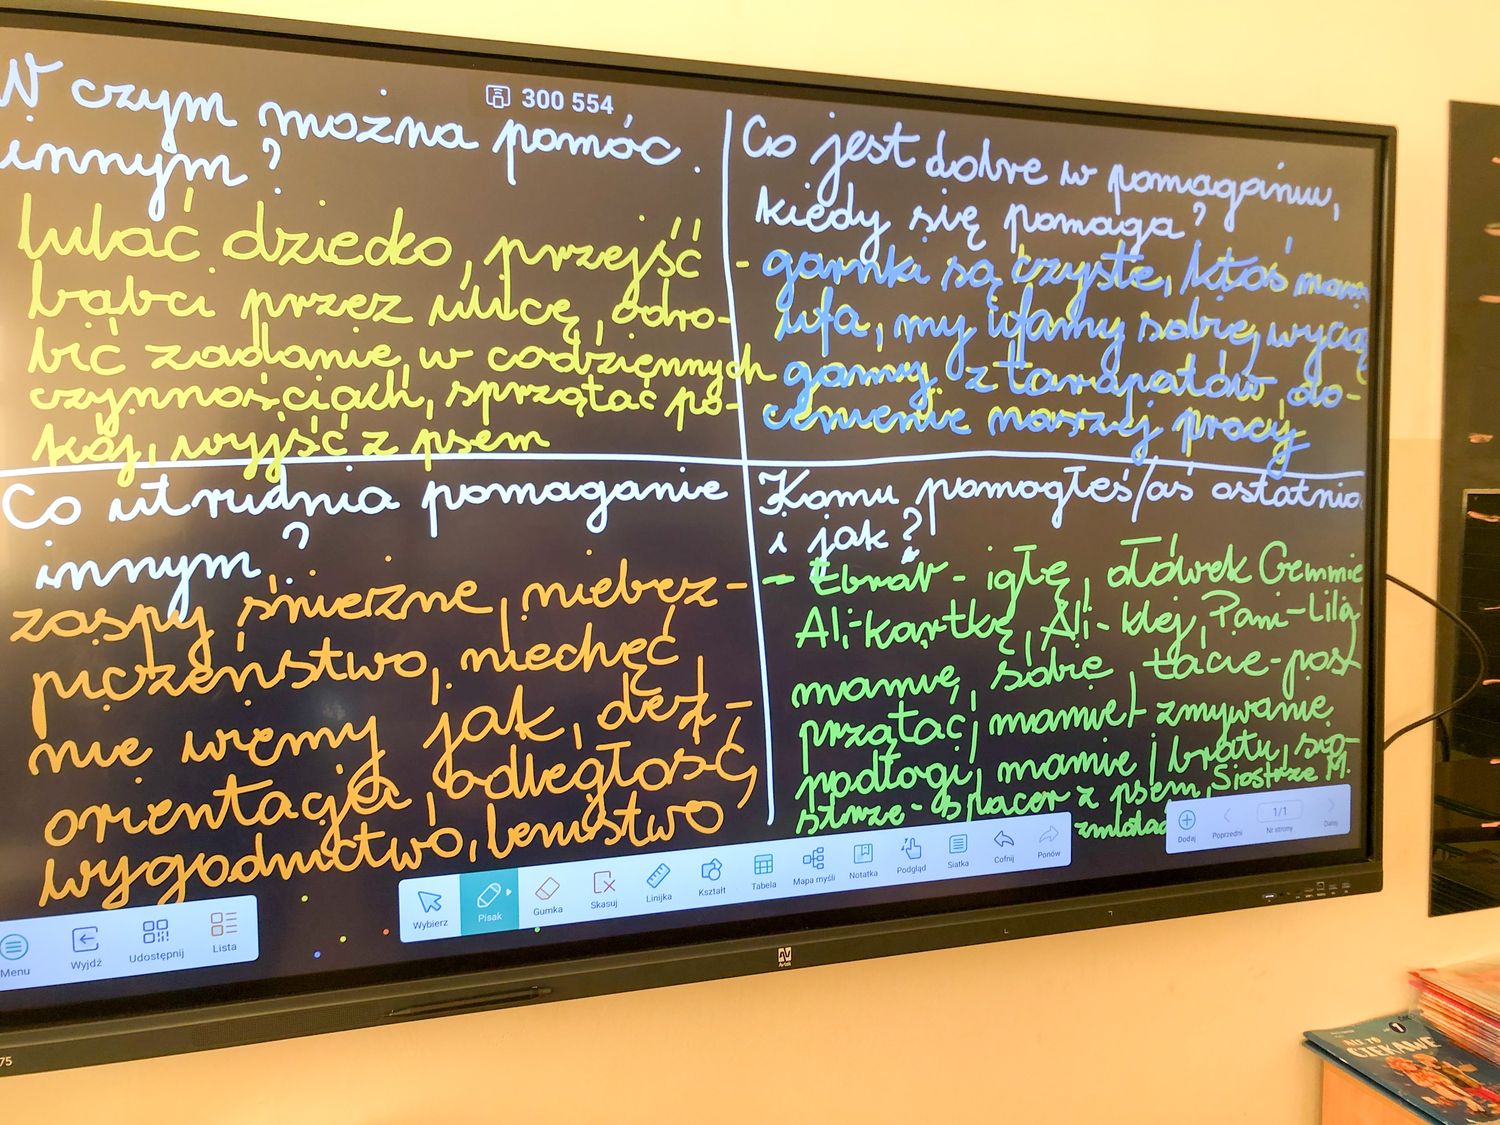 300 554
W czym można pomóc
innym?
lulać dziecko, przejść
babci przez ulicę, odro-
bić zadanie, w codziennych
czynnościach, sprzątać po-
kój, wyjść z psem
Co jest dobre w pomaganiu,
kiedy się pomaga?
- garnki są czyste, ktoś nam
ufa, my ufamy sobie, wycią
gamy z tarapatów, do-
cenienie naszej pracy
Co utrudnia pomaganie
innym?
zaspy śnieżne, niebez-
pieczeństwo, niechęć,
nie wiemy jak, dez-
orientacja, odległość,
wygodnictwo, lenistwo
Komu pomogłeś/aś ostatnio
i jak?
- igłę, ołówek Gemmie
Ali-kartkę, Ali-klej, Pani-Lilą
mamie, sobie, tacie-pos
przątać, mamie - zmywanie
podłogi, mamie, bratu, sio-
strze - spacer z psem, Siostrze M.
Menu
Wyjdź
Udostępnij
Lista
Wybierz
Pisak
Gumka
Skasuj
Linijka
Kształt
Tabela
Mapa myśli
Notatka
Podgląd
Siatka
Cofnij
Ponów
Dodaj
Poprzedni
1/1
Nr strony
Dalej
Avtek
75
ALE TO
CIEKAWE
1